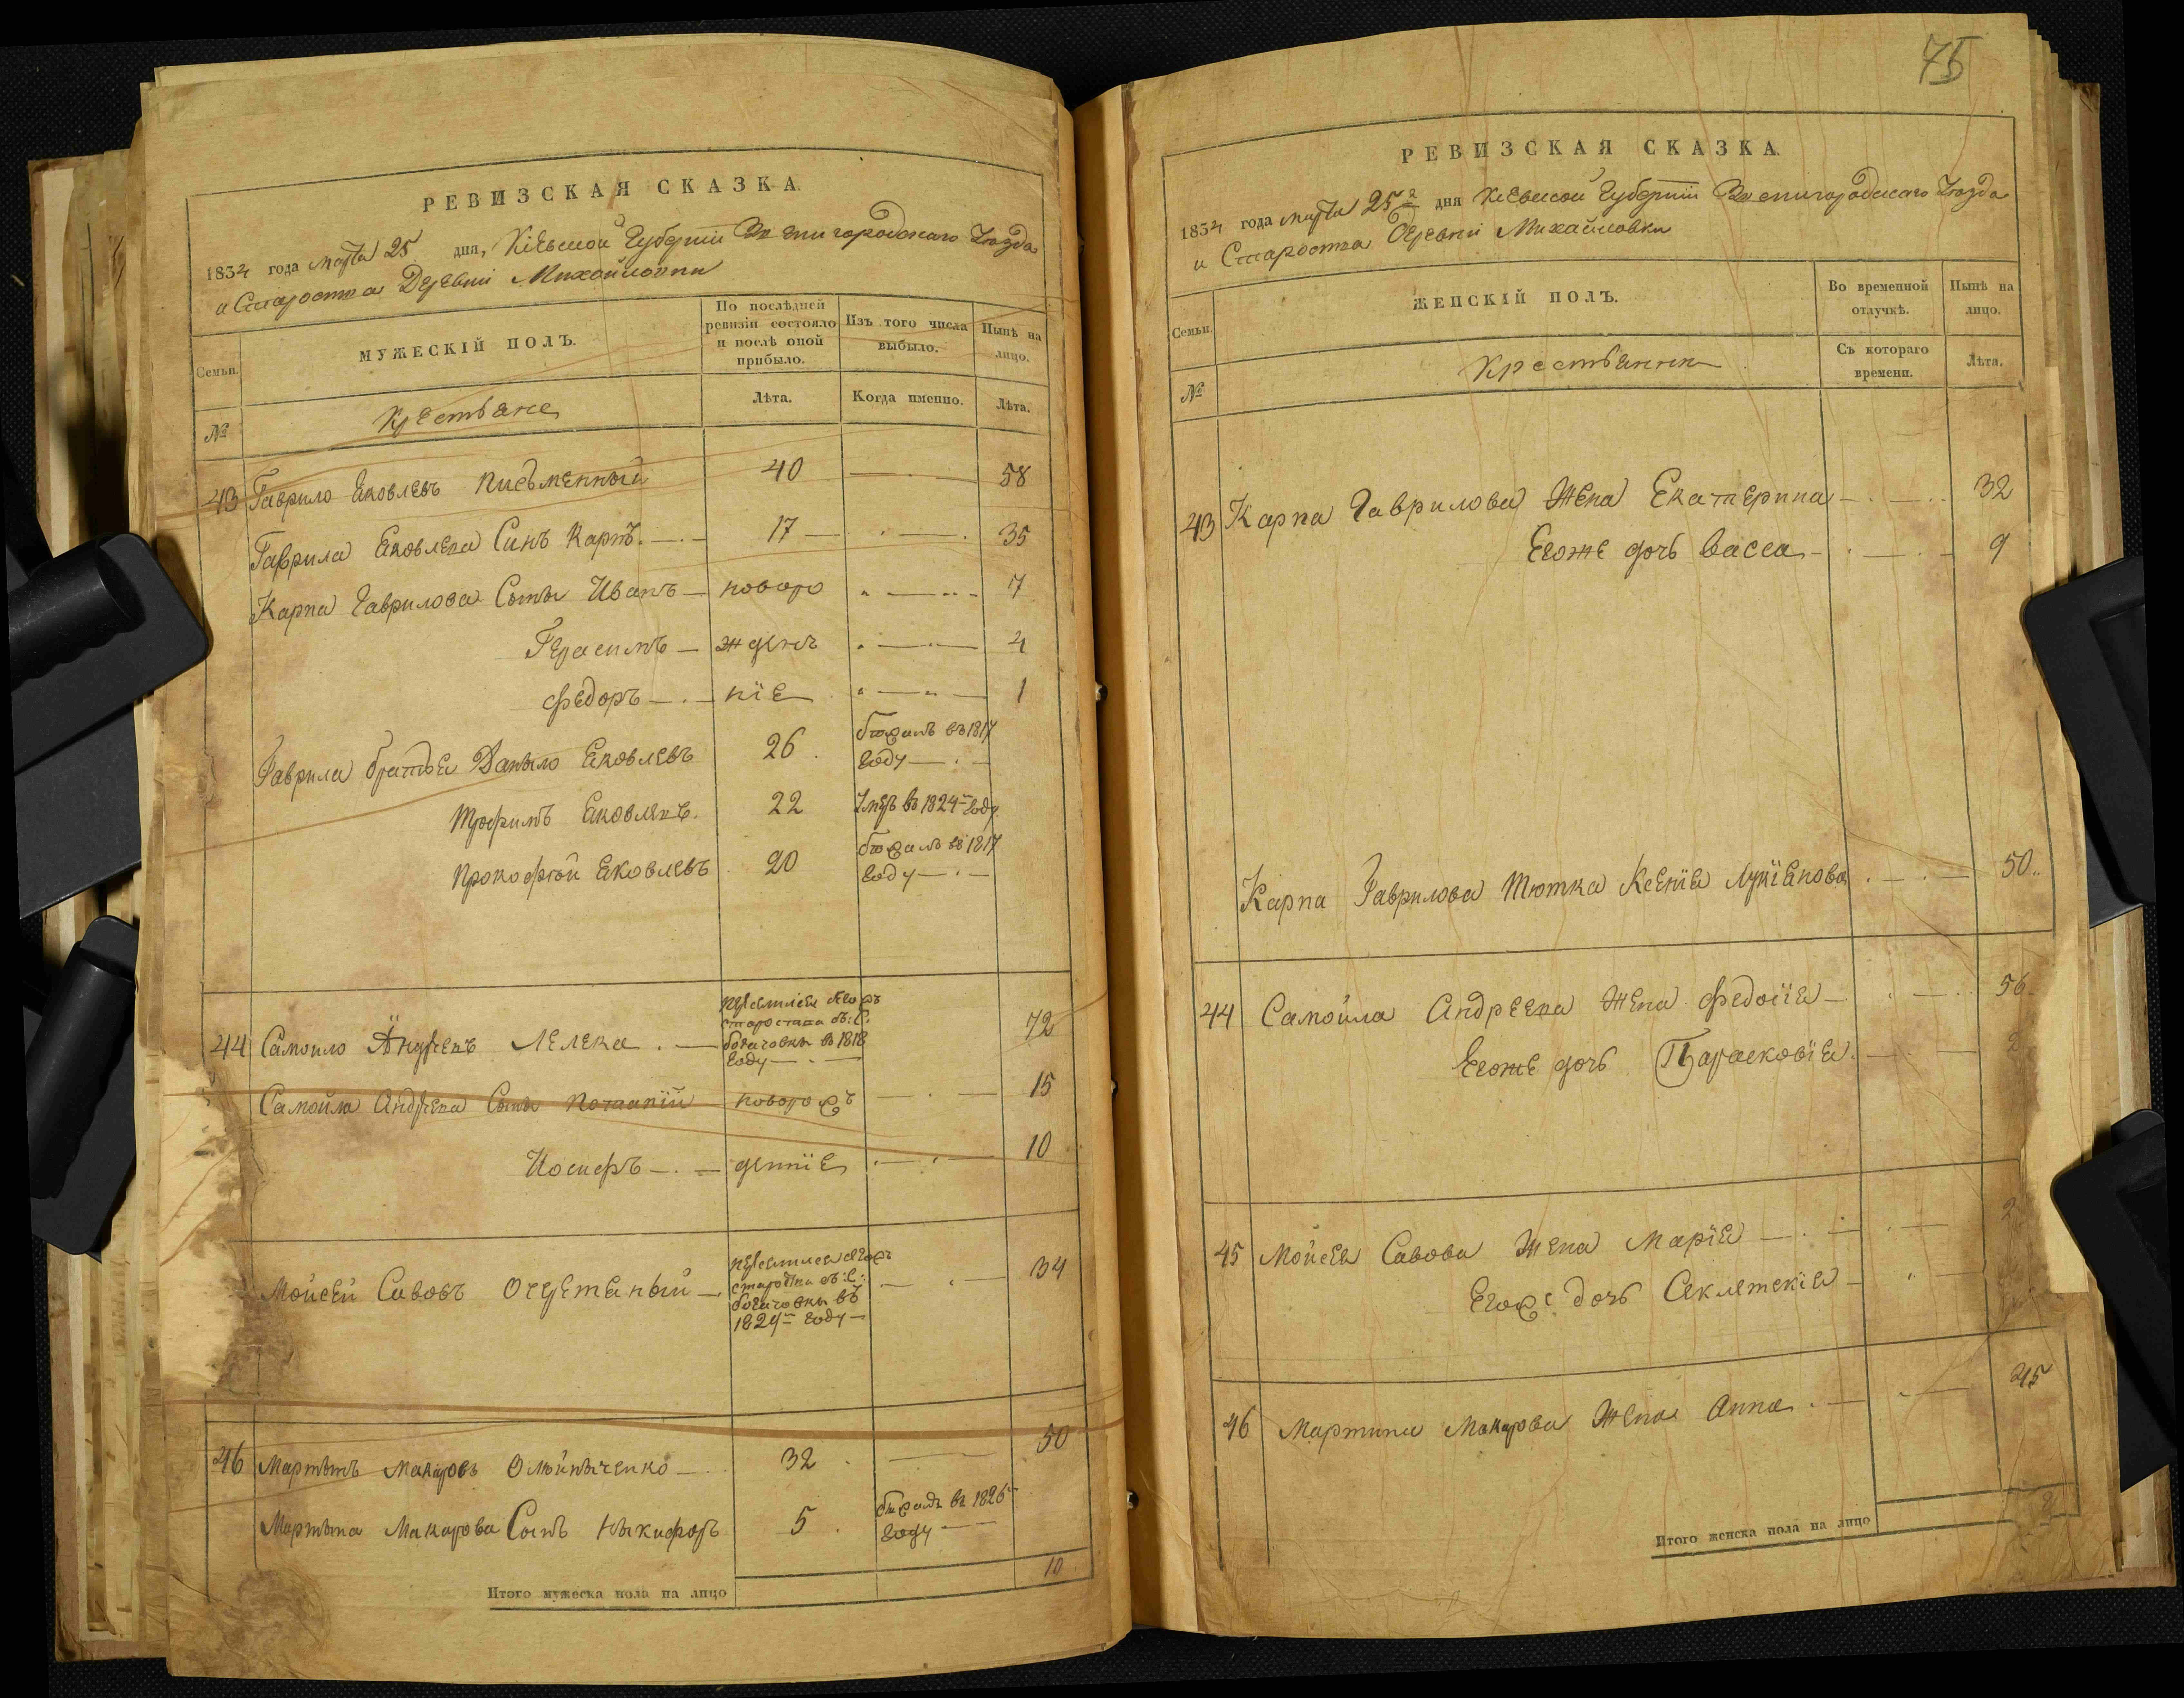 РЕВИЗСКАЯ СКАЗКА.
1834 года марта 25 дня, Кіевской Губерніи Звенигородскаго Уѣзда
и Староства Деревни Михайловки
Семьи.
МУЖЕСКІЙ ПОЛЪ.
По послѣдней ревизіи состояло и послѣ оной прибыло.
Изъ того числа выбыло.
Нынѣ на лицо.
№
Крестьяне
Лѣта.
Когда именно.
Лѣта.
43 Гаврило Яковлевъ Письменный 40 — 58
Гаврила Яковлева Синъ Карпъ 17 — 35
Карпа Гаврилова Сыны Иванъ — новоро 7
Герасимъ — жден 4
Федоръ — ніе 1
Гаврила братья Данило Яковлевъ 26 бѣжалъ въ 1817
году
Трофимъ Яковлевъ 22 Умеръ въ 1824 году
Прокофій Яковлевъ 20 бѣжалъ въ 1817
году
44 Самойло Андреевъ Лелека 72
староства въ: С:
въ 1818
году
Самойла Андреева Сыны Потапій новорож 15
Иосифъ — деніе 10
Мойсей Савовъ Очеретяный — 34
староства въ: С:
въ
1829 году —
46 Мартынъ Макаровъ Олѣйныченко — 32 50
Мартына Макарова Сынъ Ныкифоръ 5 бѣжалъ въ 1826
году
Итого мужеска пола на лицо 10
75
РЕВИЗСКАЯ СКАЗКА.
1834 года марта 25 дня Кіевской Губерніи Звенигородскаго Уѣзда
и Староства Деревни Михайловки
Семьи.
ЖЕНСКІЙ ПОЛЪ.
Во временной отлучкѣ.
Нынѣ на лицо.
№
Крестьянки
Съ котораго времени.
Лѣта.
43 Карпа Гаврилова Жена Екатерина 32
Егоже дочь Васса 9
Карпа Гаврилова Тютка Ксенія Лукіянова 50
44 Самойла Андреева Жена Федосія — 56
Егоже дочь Парасковія 2
45 Мойсея Савова Жена Марія —
Егоже дочь Секлетекія —
46 Мартина Макарова Жена Анна 45
Итого женска пола на лицо